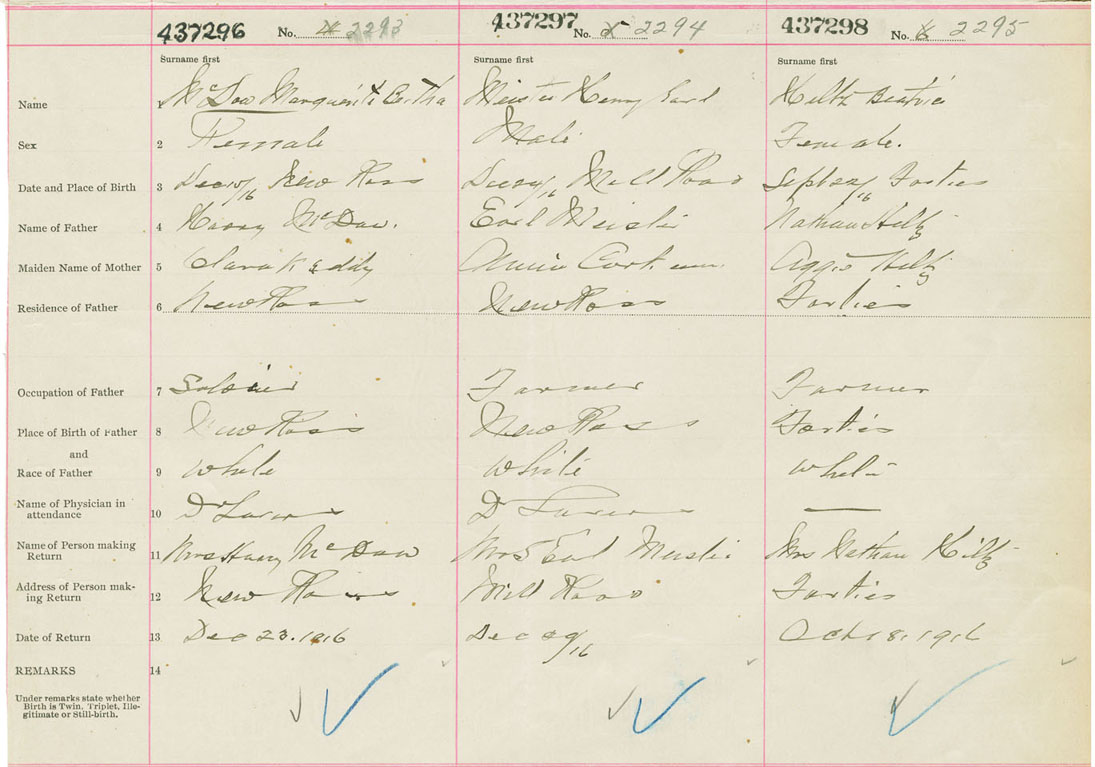 437296 No. 2293 437297 No. 2294 437298 No. 2295
Surname first Surname first Surname first
Name 1 Bertha Meister Henry Earl Hiltz Beatrice
Sex 2 Female Male Female.
Date and Place of Birth 3 /16 New Ross /16 Mill Road /16 Forties
Name of Father 4 Harry McDaw. Earl Meister Nathan Hiltz
Maiden Name of Mother 5 Annie Aggie Hiltz
Residence of Father 6 New Ross New Ross Forties
Occupation of Father 7 Soldier Farmer Farmer
Place of Birth of Father 8 New Ross New Ross Forties
and
Race of Father 9 White White White
Name of Physician in
attendance 10 Dr Dr —
Name of Person making
Return 11 Mrs Harry McDaw Mrs Earl Meister Mrs Nathan Hiltz
Address of Person mak-
ing Return 12 New Ross Mill Road Forties
Date of Return 13 Dec 23. 1916 Dec /16 Oct 18, 1916
REMARKS 14
Under remarks state whether
Birth is Twin, Triplet, Ille-
gitimate or Still-birth.